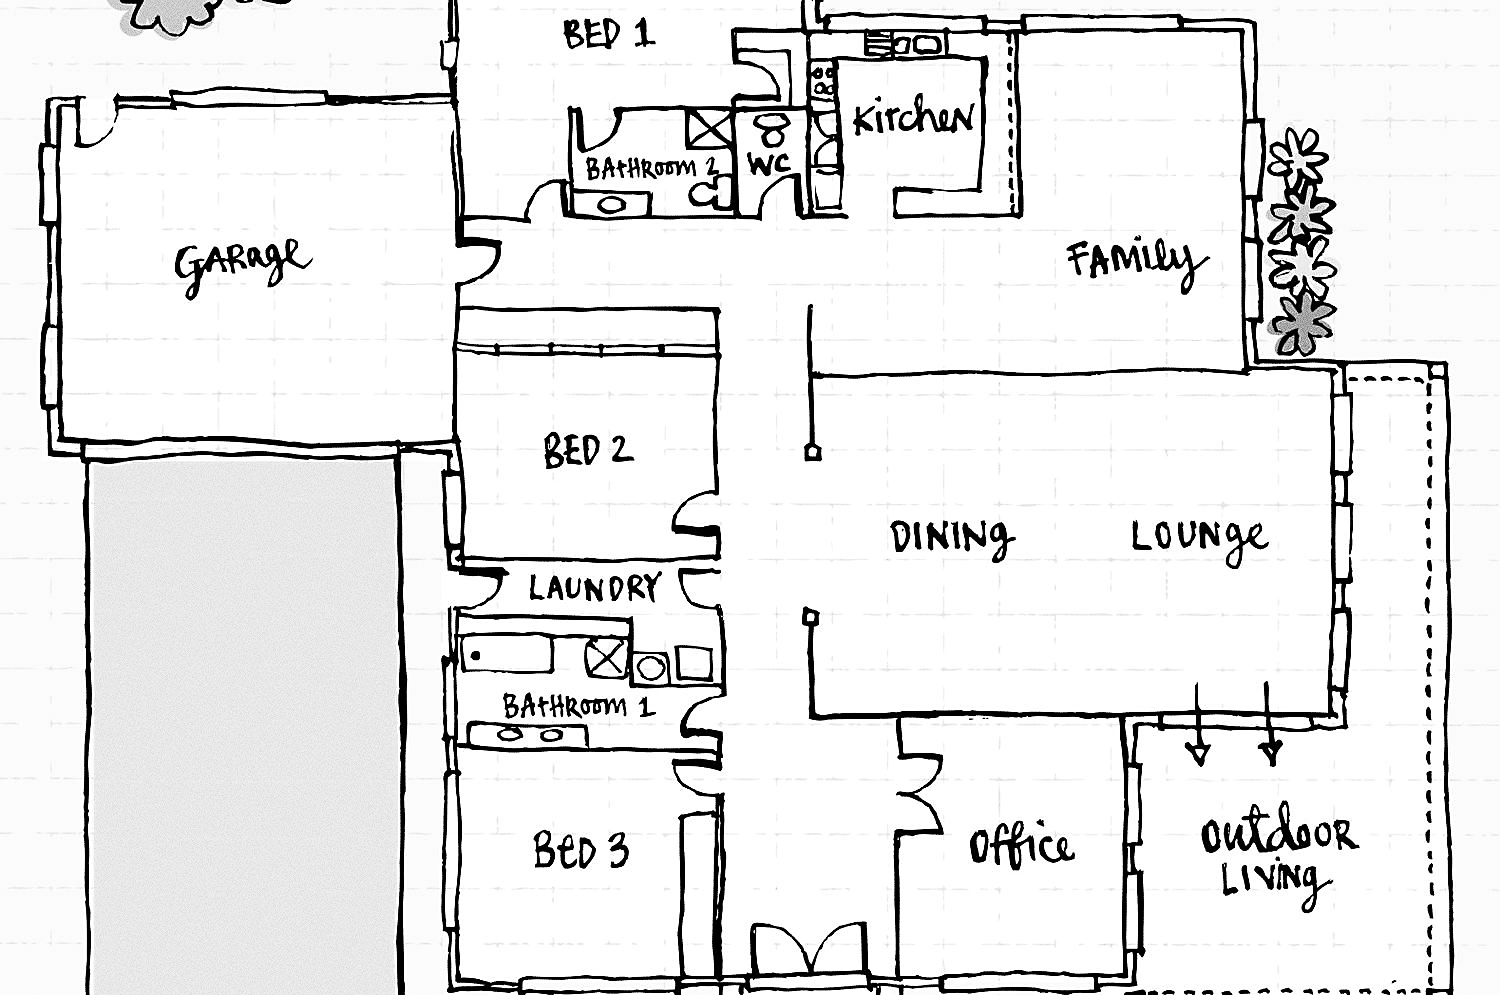 BED 1
Kitchen
BAtHRoom 2
WC
GARage
FAMily
BED 2
DINING
LOUNge
LAUNDRY
BAtHRoom 1
Bed 3
Office
OutdooR
LIVing